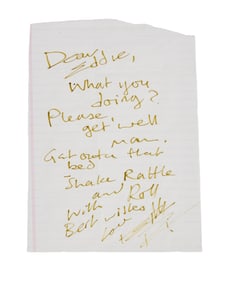 Dear Eddie,
What you
doing?
Please,
get well
man.
Get outta that
bed
Shake Rattle
and Roll
With
Best wishes
Love